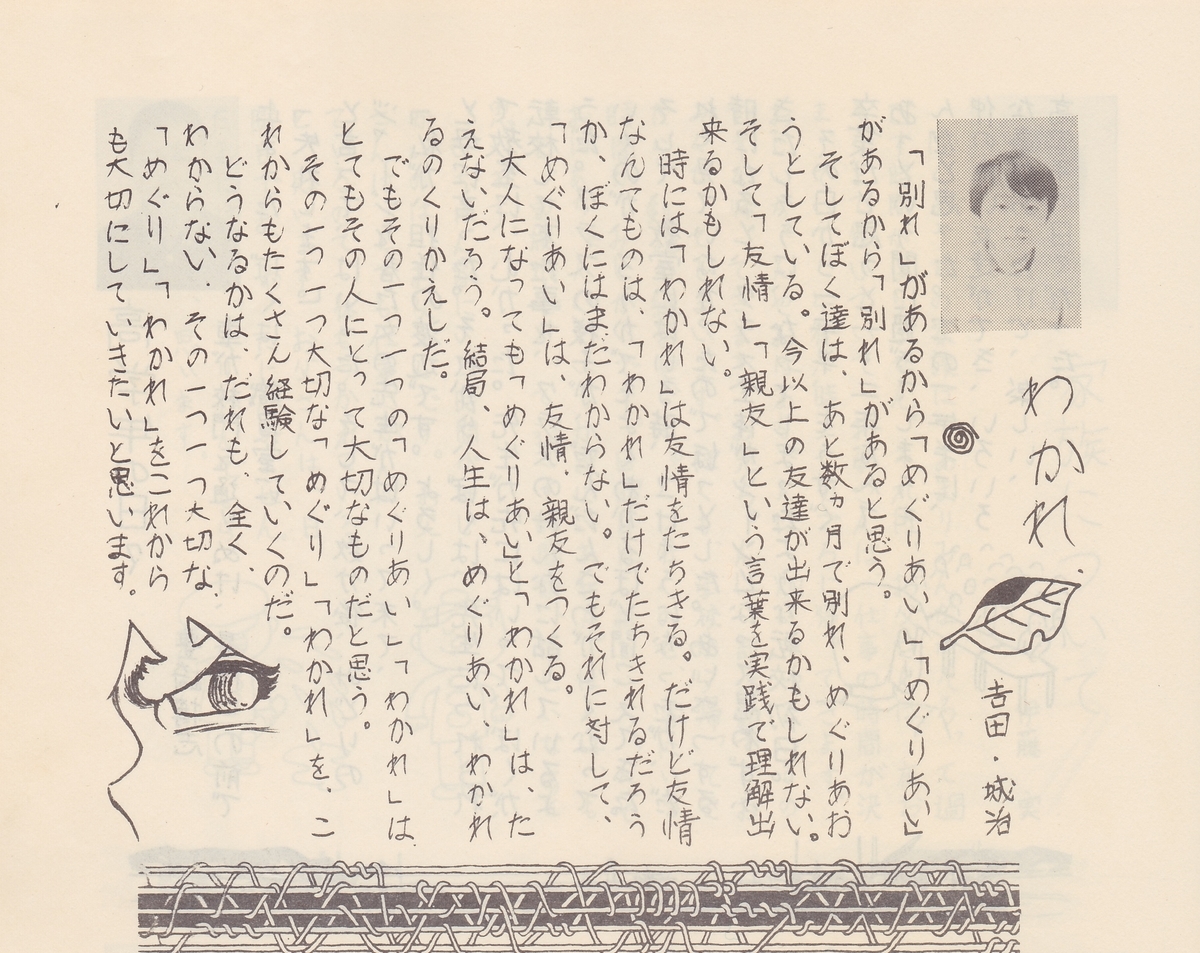 わかれ
吉田・城治
「別れ」があるから「めぐりあい」「めぐりあい」
があるから「別れ」があると思う。
そしてぼく達は、あと数ヵ月で別れ、めぐりあお
うとしている。今以上の友達が出来るかもしれない。
そして「友情」「親友」という言葉を実践で理解出
来るかもしれない。
時には「わかれ」は友情をたちきる。だけど友情
なんてものは、「わかれ」だけでたちきれるだろう
か、ぼくにはまだわからない。でもそれに対して、
「めぐりあい」は、友情、親友をつくる。
大人になっても「めぐりあい」と「わかれ」は、た
えないだろう。結局、人生は、めぐりあい、わかれ
るのくりかえしだ。
でもその一つ一つの「めぐりあい」「わかれ」は
とてもその人にとって大切なものだと思う。
その一つ一つ大切な「めぐり」「わかれ」を、こ
れからもたくさん経験していくのだ。
どうなるかは、だれも、全く、
わからない、その一つ一つ大切な
「めぐり」「わかれ」をこれから
も大切にしていきたいと思います。